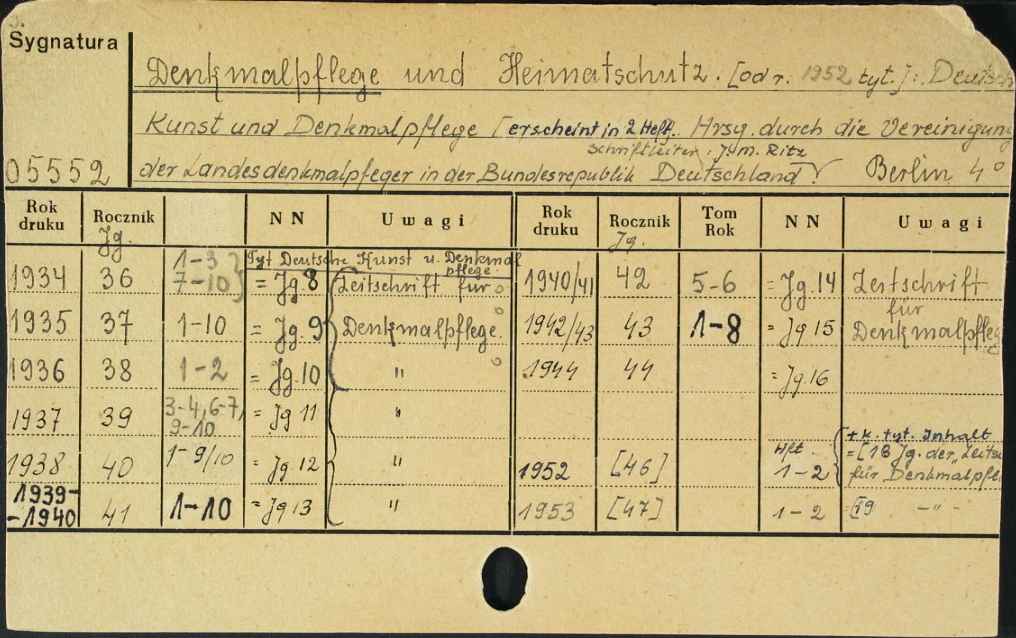 Sygnatura
Denkmalpflege und Heimatschutz. [od r. 1952 tyt.]: Deutsch
Kunst und Denkmalpflege [erscheint in 2 Heft. Hrsg. durch die Vereinigung
Schriftleiter: J. M. Ritz
05552 der Landesdenkmalpfleger in der Bundesrepublik Deutschland. Berlin 4°
Rok druku Rocznik Jg. NN Uwagi Rok druku Rocznik Jg. Tom Rok NN Uwagi
Tyt Deutsche Kunst u. Denkmal
pflege.
1934 36 1-3 7-10} = Jg. 8 Zeitschrift für 1940/41 42 5-6 = Jg. 14 Zeitschrift
für
1935 37 1-10 = Jg. 9 Denkmalpflege. 1942/43 43 1-8 = Jg. 15 Denkmalpfleg
1936 38 1-2 = Jg. 10 " 1944 44 = Jg. 16
1937 39 3-4, 6-7, 9-10 = Jg 11 "
+ k. tyt. Inhalt
1938 40 1-9/10 = Jg. 12 " 1952 [46] Hft. 1-2 = [18 Jg. der „Zeitsc
für Denkmalpfle
1939-
-1940 41 1-10 = Jg 13 " 1953 [47] 1-2 = [19 -"-